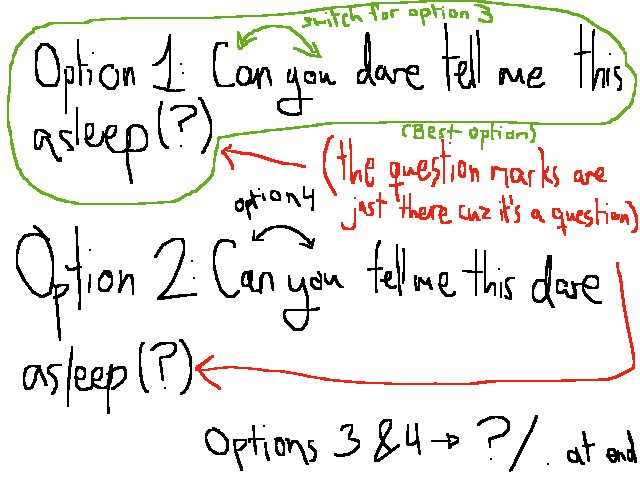 switch for option 3
Option 1: Can you dare tell me this
asleep(?)
(Best option)
(the question marks are
just there cuz it's a question)
option 4
Option 2: Can you tell me this dare
asleep(?)
Options 3 & 4 → ?/. at end